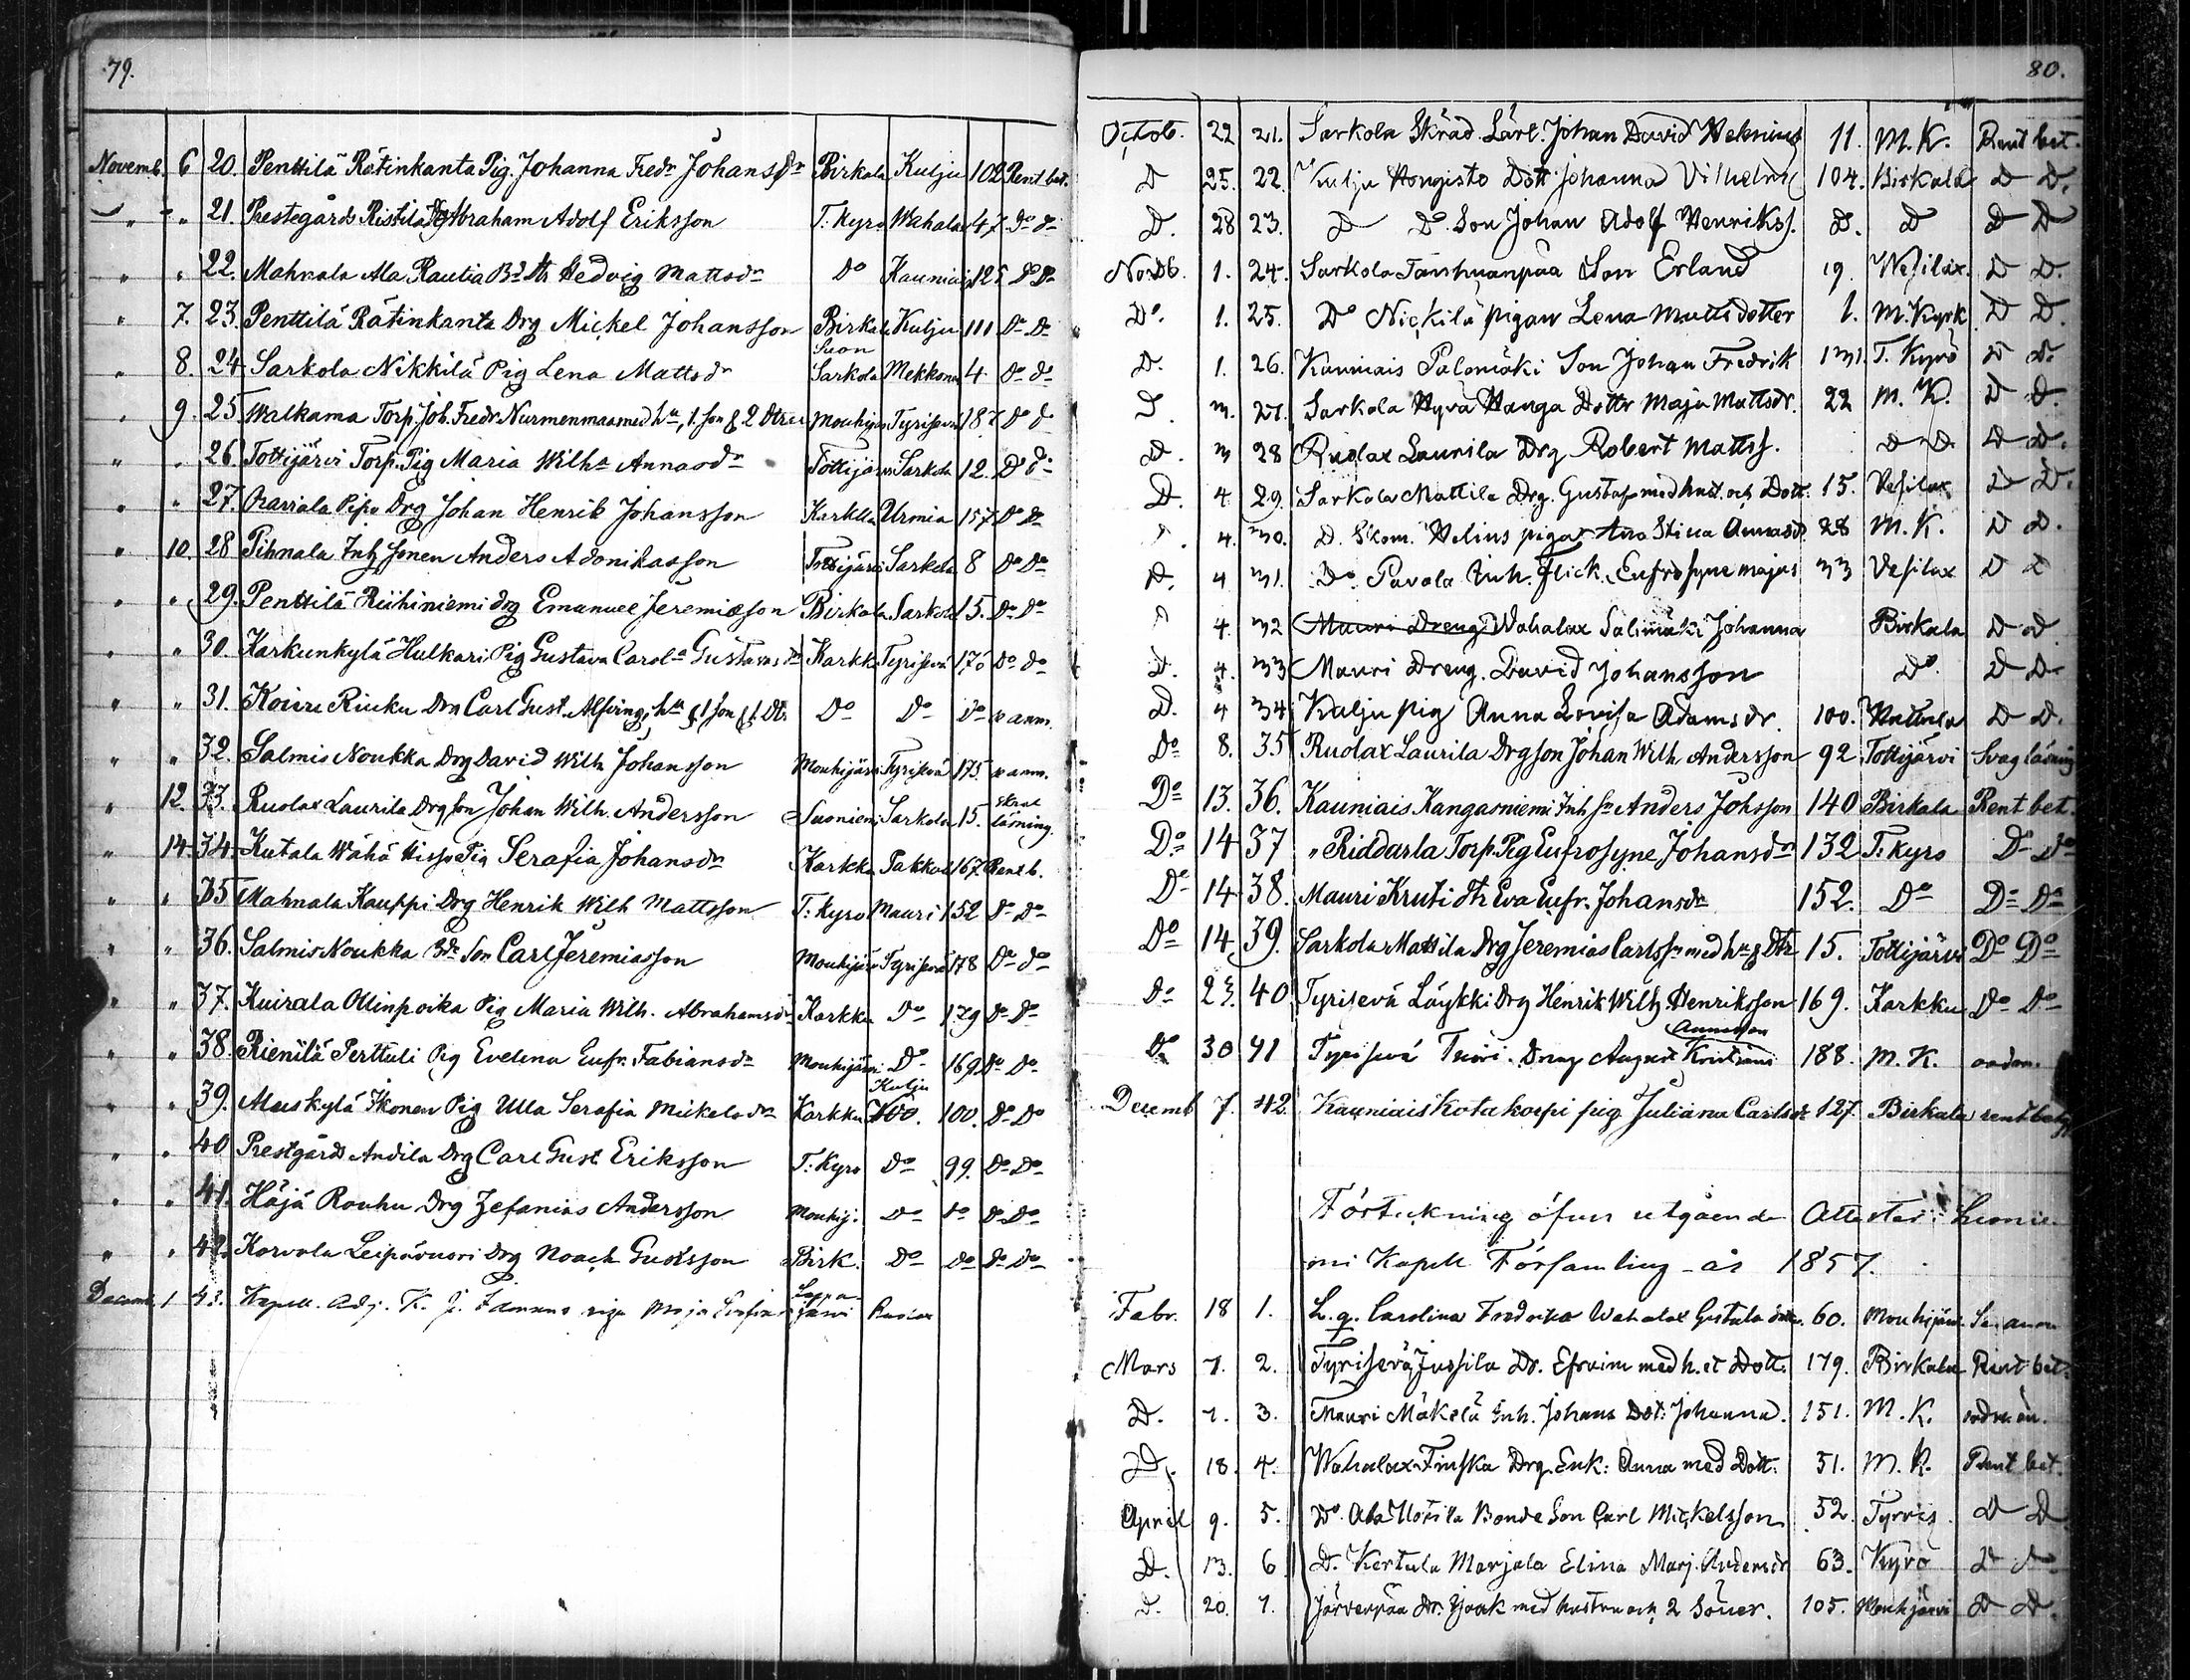 79.
Novemb. 6 20. Penttilä Rätinkanta Pig. Johanna Fredr Johansdr Birkala Kulju 102 Rent bet.
" " 21. Prestegårds Ristilä Drg Abraham Adolf Eriksson T. Kyro Wahala 47 Do do
" " 22. Mahnala Ala Rautia Bde dtr Hedvig Mattsdr Do Kauniais 125 Do Do
" 7. 23. Penttilä Rätinkanta Drg Mickel Johansson Birkala Kulju 111 Do Do
" 8. 24 Sarkola Nikkilä Pig Lena Mattsdr Suon Sarkola Mekkonen 4 Do do
" 9. 25 Walkama Torp. Joh. Fredr. Nurmenmaa med hu, 1. son & 2 dtrar Mouhij. Tyrisevä 187 Do do
" " 26. Tottijärvi Torp. Pig Maria Wilha Annasdr Tottijärvi Sarkola 12. Do do
" " 27. Pipo Drg Johan Henrik Johansson Karkku Urmia 157 Do Do
" 10. 28 Pihnala Inh sonen Anders Adonikasson Tottijärvi Sarkola 8 Do Do
" " 29. Penttilä Riihiniemi drg Emanuel Jeremiasson Birkala Sarkola 15. Do Do
" " 30. Karkunkylä Hulkari Pig Gustava Carola Gustavsdr Karkk Tyrisevä 176 Do Do
" " 31. Rinku Drg Carl Gust. Alfving, hu & 1 son & 1 Dtr Do Do Do anm.
" " 32. Salmis Noukka Drg David Wilh Johansson Mouhijärvi Tyrisevä 175 anm.
" 12. 33. Ruolax Laurila Drg son Johan Wilh. Andersson Suoniemi Sarkola 15. läsning.
" 14 34 Kutala Wähä Hissa Pig Serafia Johansdr Karkku Pakkal 167 Rent b.
" " 35 Mahnala Kauppi Drg Henrik Wilh Mattsson T. Kyro Mauri 152 Do Do
" " 36. Salmis Noukka Bde Son Carl Jeremiasson Mouhijärvi Tyrisevä 178 Do do
" " 37. Kuirala Ollinpoika Pig Maria Wilh. Abrahamsdr Karkku Do 179 Do Do
" " 38. Rienilä Perttuli Pig Evelina Eufr. Fabiansdr Mouhijärvi Do 169 Do Do
" " 39. Aluskylä Ikonen Pig Ulla Serafia Mickelsdr Karkku Kulju 100. Do Do
" " 40 Prestgårds Andila Drg Carl Gust Eriksson T. Kyro Do 99. Do Do
" " 41. Häjä Rouhu Drg Zefanias Andersson Mouhij. Do Do Do Do
" " 42. Korvola Leipävuori Drg Noach Gustsson Birk. Do Do Do Do
Decemb. 1 43. Kapell. Adj. K. J. piga Maja Lappajärvi Ruolax
80.
Octob. 22 21. Sarkola Skräd. Lärl. Johan David Helenius 11. M. K. Rent bet.
D 25. 22. Kulju Hongisto Dott Johanna Vilhelm. 104. Birkala D D.
D. 28 23. D Do Son Johan Adolf Henrikss. D. D D D
Novb. 1. 24. Sarkola Tanhuanpää Son Erland 19. Vesilax. D D.
Do. 1. 25. Do Nickilä pigan Lena Mattsdotter 1. M. Kyrk D D.
D. 1. 26. Kauniais Palomäki Son Johan Fredrik 131. T. Kyrö D D.
D. 3. 27. Sarkola Hyrä Hanga Dottr Maja Mattsdr. 22 M. K. D D.
D. 3 28 Ruolax Laurila Drg Robert Mattss. D D. D D.
D. 4 29. Sarkola Mattila Drg. Gustaf med hust. och Dott. 15. Vesilax D D.
D. 4. 30. D. Skom. Helins piga Ana Stina Annasdr 28 M. K. D D.
D. 4 31. Do. Pavola Inh. flick. Eufrosyne majas 33 Vesilax D D
D 4. 32 Mauri Dreng Wahalax Salimäki Johanna Birkala D D
D. 4. 33 Mauri Dreng. David Johansson Do. D D.
D. 4 34 Kulju pig Anna Lovisa Adamsdr. 100. D D.
Do 8. 35 Ruolax Laurila Drgson Johan Wilh Andersson 92 Tottijärvi Svag läsning
Do 13. 36. Kauniais Kangasniemi Inh Sn Anders Johsson 140 Birkala Rent bet.
Do 14 37 " Riddarla Torp. Pig Eufrosyne Johansdr 132 T: Kyro Do Do
Do 14 38. Mauri Kruti dtr Eva Eufr. Johansdr 152. Do Do Do
Do 14. 39. Sarkola Mattila Drg Jeremias Carlssn med hu & Dtr 15. Tottijärvi Do Do
Do 23. 40. Tyrisevä Läykki Drg Henrik Wilh Henriksson 169. Karkku Do Do
Do 30 41 Tyrisevä Tuori. Dreng August Annasson 188. M. K.
Decemb 7. 42. Kauniais Kotakorpi pig Juliana Carlsdr 127. Birkala rent betyg
Förteckning öfver utgående Attester i Suonie-
mi Kapell Församling år 1857.
Febr. 18 1. L. q. Carolina Fredrika Wahalax Gustala 60. Mouhijärvi
Mars 7. 2. Tyrisevä Jussila Dr. Efraim med h. et Dott. 179. Birkala Rent bet.
D. 7. 3. Mauri Mäkelä Inh. Johans Dot: Johanna. 151. M. K.
D. 18. 4. Wahalax Finska Drg. Enk: Anna med Dott. 51. M. K. Rent bet.
April 9. 5. Do. Ala Uotila Bonde Son Carl Mickelsson 52. Tyrvis D D
D. 13. 6. D. Kertula Marjala Elina Marj. Andersdr 63. Kyrö D D
D. 20. 7. Järvenpää Dr. Isaak med hustru och 2 Söner. 105. Mouhijärvi D D.